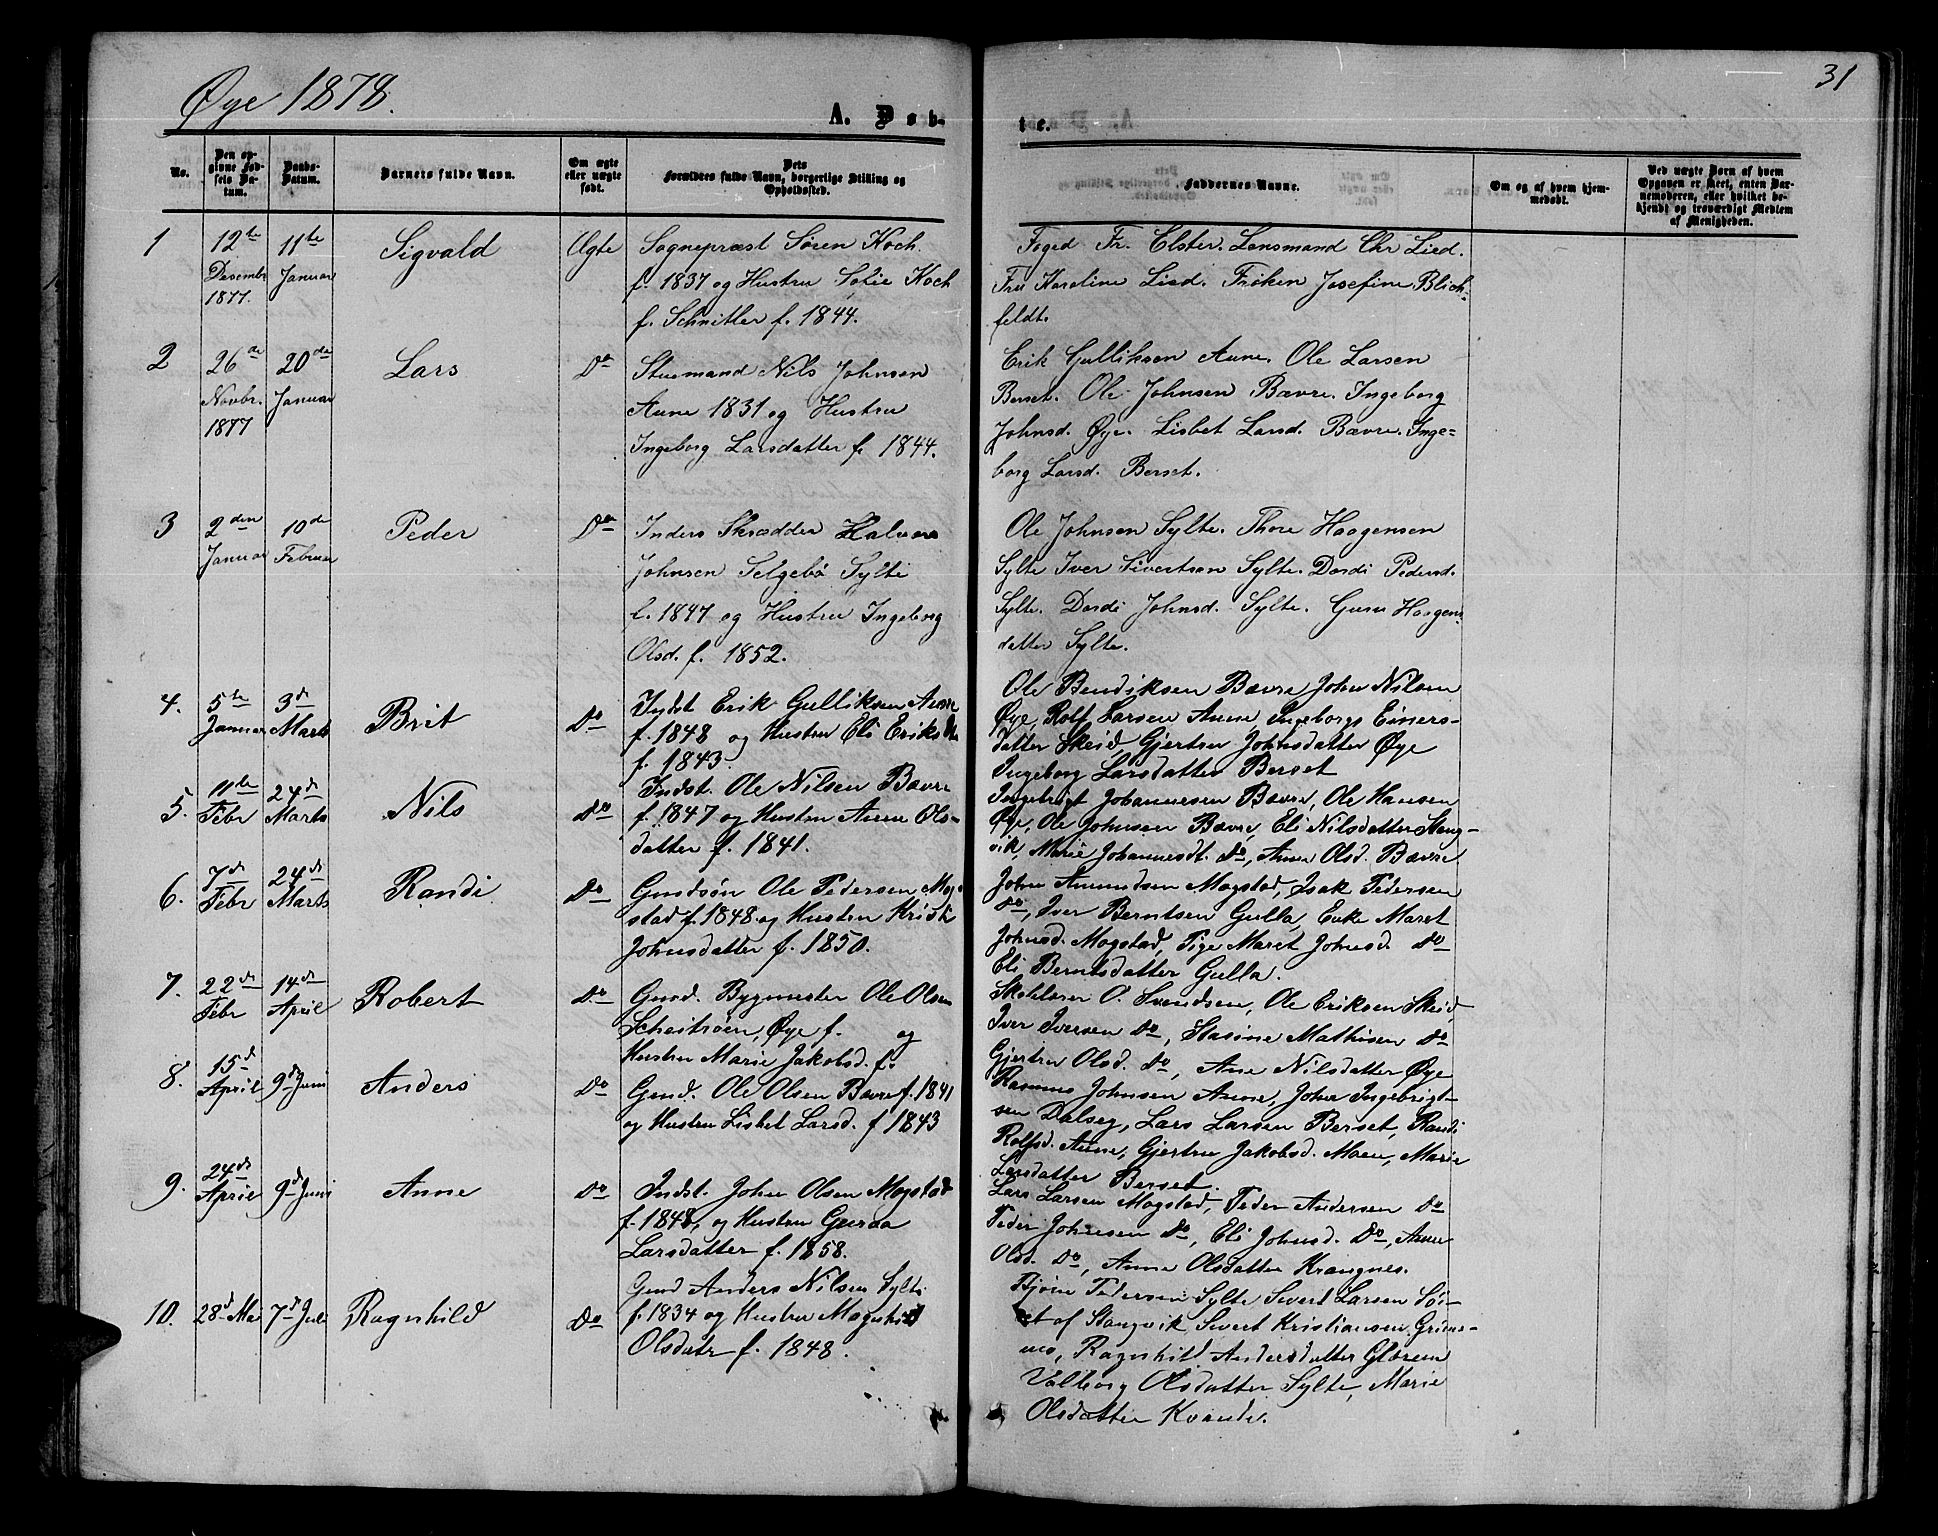 Øye 1878.
31
A. Døb-
te.
No.
Den op-
givne Fød-
sels Da-
tum.
Daabs-
Datum.
Barnets fulde Navn.
Om ægte
eller uægte
født.
Dets
Forældres fulde Navn, borgerlige Stilling og
Opholdssted.
Faddernes Navne.
Om og af hvem hjem-
medøbt.
Ved uægte Børn af hvem
Opgaven er skeet, enten Bar-
nemoderen, eller hvilket be-
kjendt og troværdigt Medlem
af Menigheden.
1
12te
Desembr
1877.
11te
Januar
Sigvald
Ægte
Sognepræst Sören Koch
f. 1837 og Hustru Sofie Koch
f. Schnitler f. 1844.
Foged Fr. Elster. Lensmand Chr Lied.
Fru Karoline Lied. Fröken Josefine Blich-
feldt.
2
26de
Novbr.
1877
20de
Januar
Lars
Do
Stusmand Nils Johnsen
Aune 1831 og Hustru
Ingeborg Larsdatter f. 1844.
Erik Gulliksen Aune. Ole Larsen
Berset. Ole Johnsen Bævre. Ingeborg
Johnsd. Øye. Lisbet Larsd. Bævre. Inge-
borg Larsd. Berset.
3
2den
Januar
10de
Februar
Peder
Do
Inders Skrædder Halvor
Johnsen Selgebö Sylte
f. 1847 og Hustru Ingeborg
Olsd. f. 1852.
Ole Johnsen Sylte. Thore Haagensen
Sylte Iver Sivertsen Sylte. Dordi Pedersd.
Sylte. Dordi Johnsd. Sylte. Guru Haagens-
datter Sylte.
4.
5te
Januar
3d
Marts
Brit
Do
Indst Erik Gulliksen Aune
f. 1848 og Hustru Eli Eriksdtr
f. 1843.
Ole Bendiksen Bævre John Nilsen
Øye, Rolf Larsen Aune, Ingeborg Einers-
datter Skeid, Gjertru Johnsdatter Øye
Ingeborg Larsdatter Berset
5.
11te
Febr
24d
Marts
Nils
Do
Indst. Ole Nilsen Bævre
f. 1847 og Hustru Anne Ols-
datter f. 1841.
Ingebrigt Johannesen Bævre, Ole Hansen
Øye, Ole Johnsen Bævre, Eli Nilsdatter Stang-
vik, Marie Johannesdt. Do, Anne Olsd. Bævre.
6.
7d
Febr
24d
Marts
Randi
Do
Grudsön Ole Pedersen Mog-
stad f. 1848 og Hustru Kristi
Johnsdatter f. 1850.
John Amundsen Mogstad, Isak Pedersen
Do, Iver Berntsen Gulla, Enke Maret
Johnsd. Mogstad, Pige Maret Johnsd. Do
Eli Berntsdatter Gulla.
7.
22d
Febr
14d
April
Robert
Do
Grud. Bygmester Ole Olsen
Scheitröen, Øye f. og
Hustru Marie Jakobsd. f.
Skolelærer O. Svendsen, Ole Eriksen Skeid,
Iver Iversen Do, Stasine Mathisen Do
Gjertru Olsd. Do, Ane Nilsdatter Øye
8.
15d
April
9d Juni
Anders
Do
Grud. Ole Olsen Bævre f. 1841
og Hustru Lisbet Larsd. f 1843
Rasmus Johnsen Aune, John Ingebrigt-
sen Dalseg, Lars Larsen Berset, Randi
Rolfsd. Aune, Gjertru Jakobsd. Moen, Marie
Larsdatter Berset.
9.
24d
April
9d Juni
Anne
Do
Indst. John Olsen Mogstad
f. 1848, og Hustru Guroa
Larsdatter f. 1858.
Lars Larsen Mogstad, Peder Andersen Do
Peder Johnsen Do, Eli Johnsd. Do, Anne
Olsd. Do, Anne Olsdatter Krangnes.
10.
28d Mai
7d Juli
Ragnhild
Do
Grud Anders Nilsen Sylte
f. 1834 og Hustru Magnhild
Olsdatr f. 1848.
Björn Pedersen Sylte Sivert Larsen
af Stangvik Sivert Kristiansen Grims-
mo, Ragnhild Andersdatter Glærem
Valborg Olsdatter Sylte, Marie
Olsdatter Kvande.